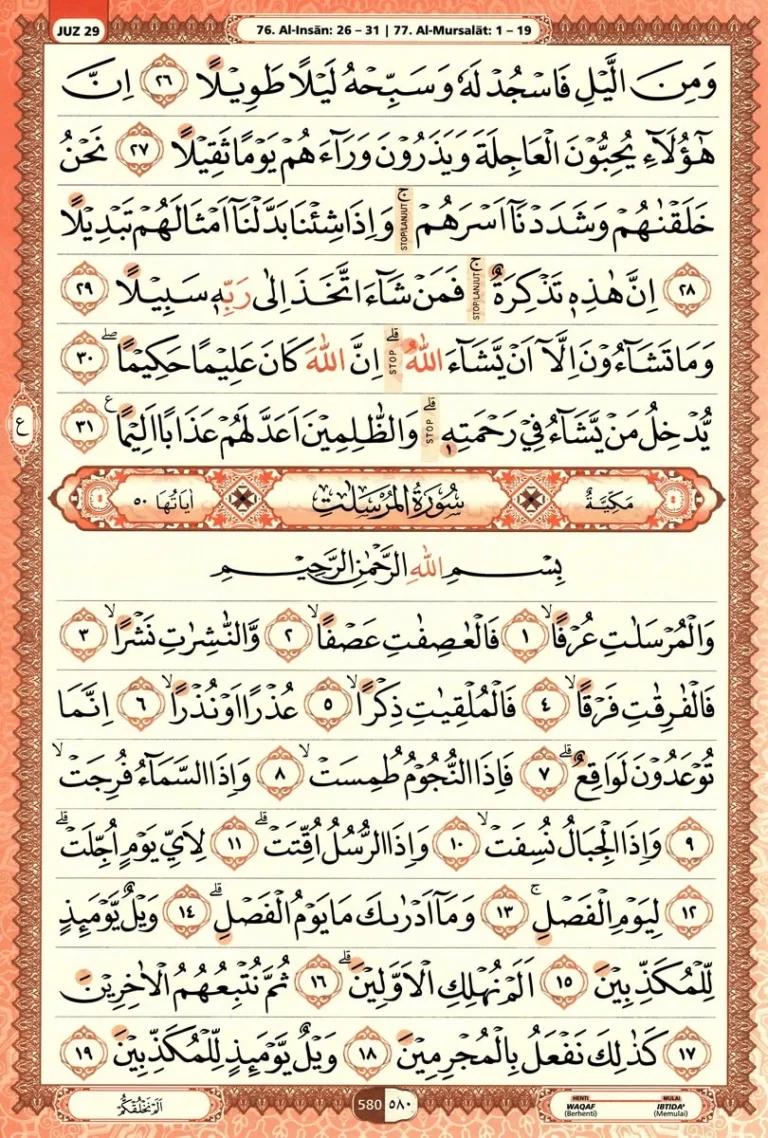 JUZ 29
76. Al-Insān: 26 – 31 | 77. Al-Mursalāt: 1 – 19
وَمِنَ الَّيْلِ فَاسْجُدْ لَهٗ وَسَبِّحْهُ لَيْلًا طَوِيْلًا ٢٦ اِنَّ
هٰٓؤُلَاۤءِ يُحِبُّوْنَ الْعَاجِلَةَ وَيَذَرُوْنَ وَرَاۤءَهُمْ يَوْمًا ثَقِيْلًا ٢٧ نَحْنُ
خَلَقْنٰهُمْ وَشَدَدْنَآ اَسْرَهُمْ ۚ STOP/LANJUT وَاِذَا شِئْنَا بَدَّلْنَآ اَمْثَالَهُمْ تَبْدِيْلًا
٢٨ اِنَّ هٰذِهٖ تَذْكِرَةٌ ۚ STOP/LANJUT فَمَنْ شَاۤءَ اتَّخَذَ اِلٰى رَبِّهٖ سَبِيْلًا ٢٩
وَمَا تَشَاۤءُوْنَ اِلَّآ اَنْ يَّشَاۤءَ اللّٰهُ ۗ STOP اِنَّ اللّٰهَ كَانَ عَلِيْمًا حَكِيْمًا ۖ ٣٠
يُّدْخِلُ مَنْ يَّشَاۤءُ فِيْ رَحْمَتِهٖ ۗ STOP وَالظّٰلِمِيْنَ اَعَدَّ لَهُمْ عَذَابًا اَلِيْمًا ࣖ ٣١
ع
مَكِّيَّةٌ سُوْرَةُ الْمُرْسَلٰتِ اٰيَاتُهَا ٥٠
بِسْمِ اللّٰهِ الرَّحْمٰنِ الرَّحِيْمِ
وَالْمُرْسَلٰتِ عُرْفًاۙ ١ فَالْعٰصِفٰتِ عَصْفًاۙ ٢ وَّالنّٰشِرٰتِ نَشْرًاۙ ٣
فَالْفٰرِقٰتِ فَرْقًاۙ ٤ فَالْمُلْقِيٰتِ ذِكْرًاۙ ٥ عُذْرًا اَوْ نُذْرًاۙ ٦ اِنَّمَا
تُوْعَدُوْنَ لَوَاقِعٌۗ ٧ فَاِذَا النُّجُوْمُ طُمِسَتْۙ ٨ وَاِذَا السَّمَاۤءُ فُرِجَتْۙ
٩ وَاِذَا الْجِبَالُ نُسِفَتْۙ ١٠ وَاِذَا الرُّسُلُ اُقِّتَتْۗ ١١ لِاَيِّ يَوْمٍ اُجِّلَتْۗ
١٢ لِيَوْمِ الْفَصْلِۚ ١٣ وَمَآ اَدْرٰىكَ مَا يَوْمُ الْفَصْلِۗ ١٤ وَيْلٌ يَّوْمَىِٕذٍ
لِّلْمُكَذِّبِيْنَ ١٥ اَلَمْ نُهْلِكِ الْاَوَّلِيْنَۗ ١٦ ثُمَّ نُتْبِعُهُمُ الْاٰخِرِيْنَ
١٧ كَذٰلِكَ نَفْعَلُ بِالْمُجْرِمِيْنَ ١٨ وَيْلٌ يَّوْمَىِٕذٍ لِّلْمُكَذِّبِيْنَ ١٩
اَلَمْ نَخْلُقْكُّمْ
580 ٥٨٠
HENTI MULAI
WAQAF IBTIDA'
(Berhenti) (Memulai)